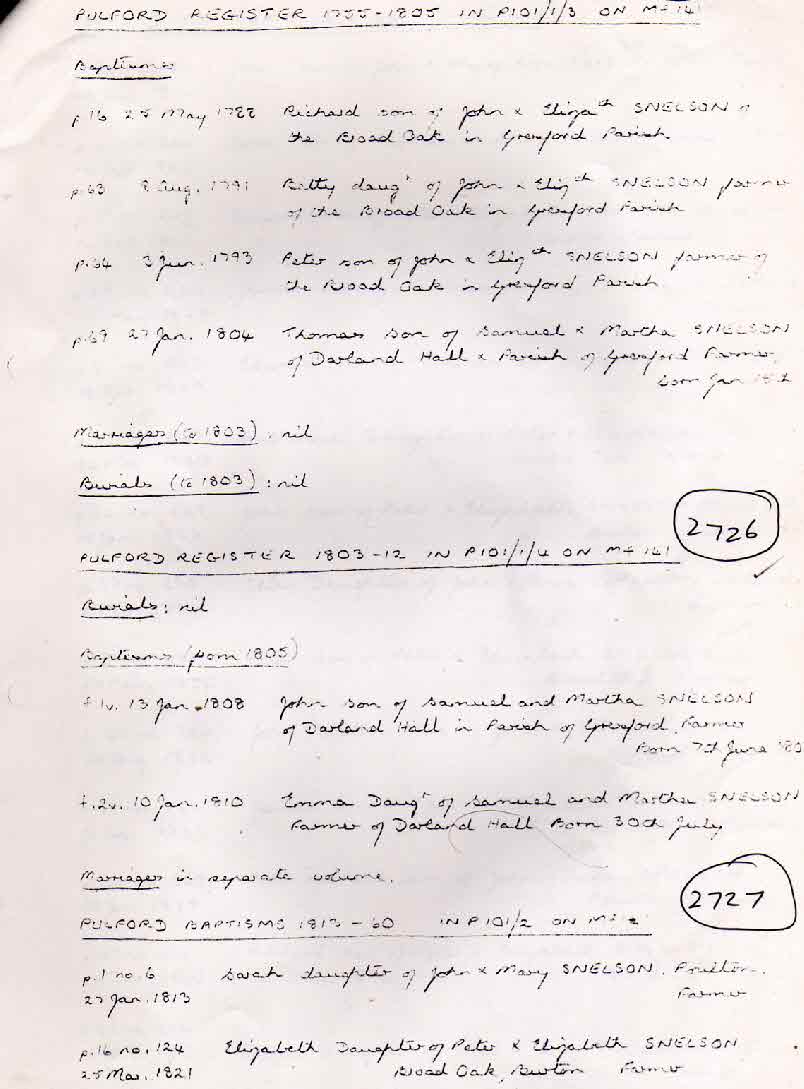 PULFORD REGISTER 1755-1805 IN P101/1/3 ON MF 141
Baptisms
p.16 25 May 1788 Richard son of John & Elizath SNELSON of
the Broad Oak in Gresford Parish
p.63 8 Aug. 1791 Betty daugr of John & Elizth SNELSON farmer
of the Broad Oak in Gresford Parish
p.64 3 Jun. 1793 Peter son of John & Elizth SNELSON farmer of
the Broad Oak in Gresford Parish
p.69 27 Jan. 1804 Thomas Son of Samuel & Martha SNELSON
of Darland Hall & Parish of Gresford Farmer,
born Jan
Marriages (to 1803) : nil
Burials (to 1803) : nil
2726
PULFORD REGISTER 1803-12 IN P101/1/4 ON MF 141
Burials: nil
Baptisms (from 1805)
f.1v. 13 Jan. 1808 John Son of Samuel and Martha SNELSON
of Darland Hall in Parish of Gresford, Farmer
Born 7th June
f.2v. 10 Jan. 1810 Emma Daugr of Samuel and Martha SNELSON
Farmer of Darland Hall Born 30th July
Marriages in separate volume.
2727
PULFORD BAPTISMS 1813-60 IN P101/2 ON MF
p.1 no. 6 Sarah daughter of John & Mary SNELSON, Poulton,
27 Jan. 1813 Farmer
p.16 no. 124 Elizabeth Daughter of Peter & Elizabeth SNELSON
25 Mar. 1821 Broad Oak, Burton Farmer